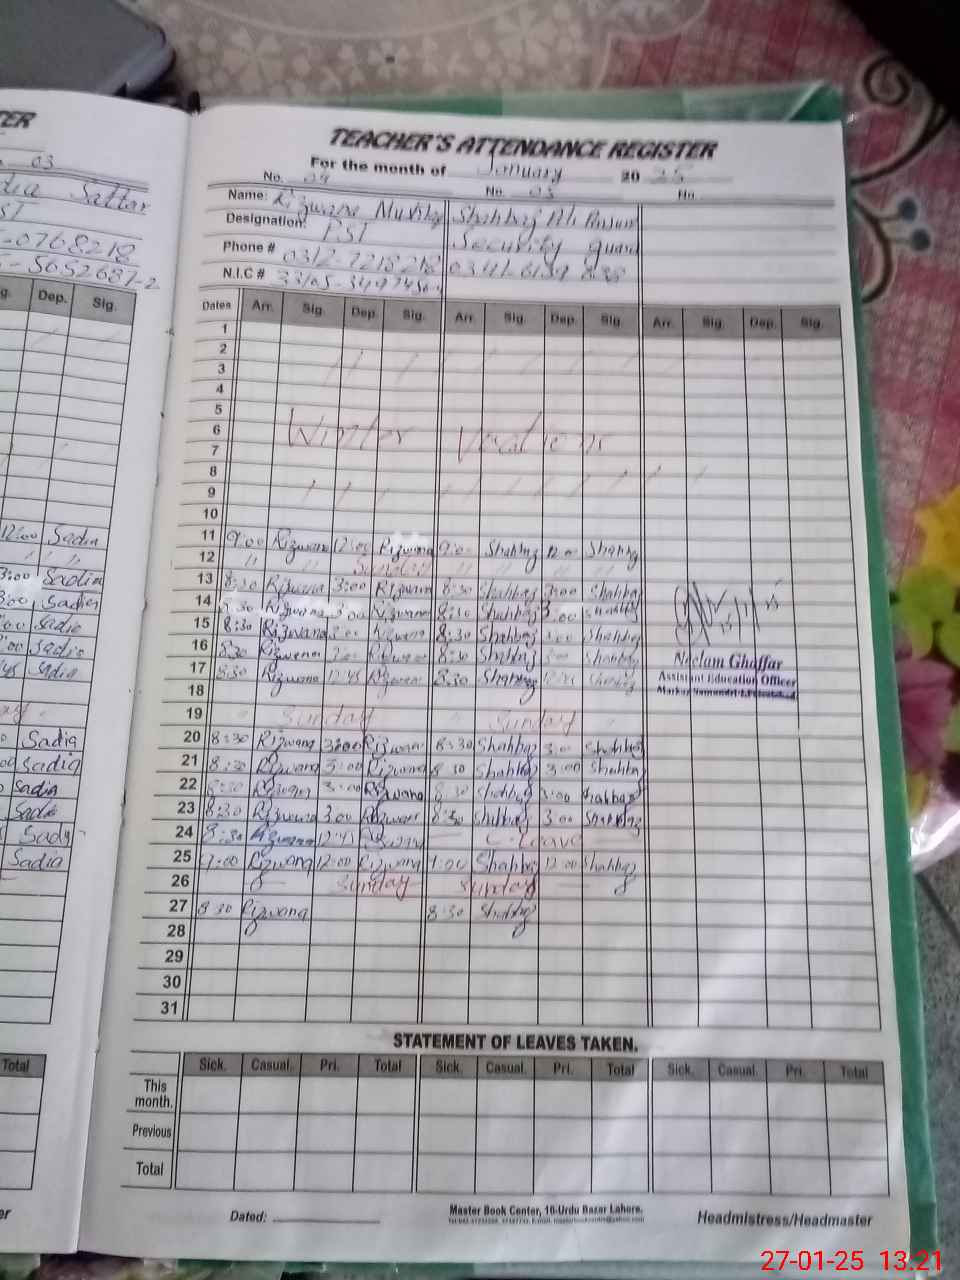 TER
03
dia Sattar
ST
-0768218
5-5652687-2
g. Dep. Sig.
12:00 Sadia
3:00 Sadia
3:00 Sadia
:00 Sadia
:00 Sadia
:45 Sadia
Sadia
Sadia
Sadia
Sadia
Sadia
Sadia
Total
TEACHER'S ATTENDANCE REGISTER
For the month of January 2025
No. 04 No. 05 No.
Name: Rizwana Mushtaq Shahbaz Ali
Designation: PST Security guard
Phone # 0312-7218218
N.I.C #
Dates Arr. Sig. Dep. Sig. Arr. Sig. Dep. Sig. Arr. Sig. Dep. Sig.
1
2
3
4
5
6 Winter Vacations
7
8
9
10
11 9:00 Rizwana 12:00 Rizwana 9:00 Shahbaz 12:00 Shahbaz
12 Sunday
13 8:30 Rizwana 3:00 Rizwana 8:30 Shahbaz 3:00 Shahbaz
14 8:30 Rizwana 3:00 Rizwana 8:30 Shahbaz 3:00 Shahbaz
15 8:30 Rizwana 3:00 Rizwana 8:30 Shahbaz 3:00 Shahbaz
16 8:30 Rizwana 3:00 Rizwana 8:30 Shahbaz 3:00 Shahbaz
17 8:30 Rizwana 12:45 Rizwana 8:30 Shahbaz 12:45 Shahbaz
Neelum Ghaffar
Assistant Education Officer
18
19 Sunday Sunday
20 8:30 Rizwana 3:00 Rizwana 8:30 Shahbaz 3:00 Shahbaz
21 8:30 Rizwana 3:00 Rizwana 8:30 Shahbaz 3:00 Shahbaz
22 8:30 Rizwana 3:00 Rizwana 8:30 Shahbaz 3:00 Shahbaz
23 8:30 Rizwana 3:00 Rizwana 8:30 Shahbaz 3:00 Shahbaz
24 8:30 Rizwana 12:45 Rizwana C-Leave
25 9:00 Rizwana 12:00 Rizwana 9:00 Shahbaz 12:00 Shahbaz
26 Sunday Sunday
27 8:30 Rizwana 8:30 Shahbaz
28
29
30
31
STATEMENT OF LEAVES TAKEN.
Sick. Casual. Pri. Total Sick. Casual. Pri. Total Sick. Casual. Pri. Total
This month.
Previous
Total
Dated:
Master Book Center, 16-Urdu Bazar Lahore.
Headmistress/Headmaster
27-01-25 13:21